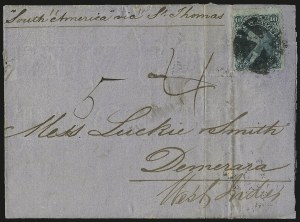 "South America" via "St. Thomas
10 10
5 4
Mess. Luckie & Smith
Demerara
West Indies